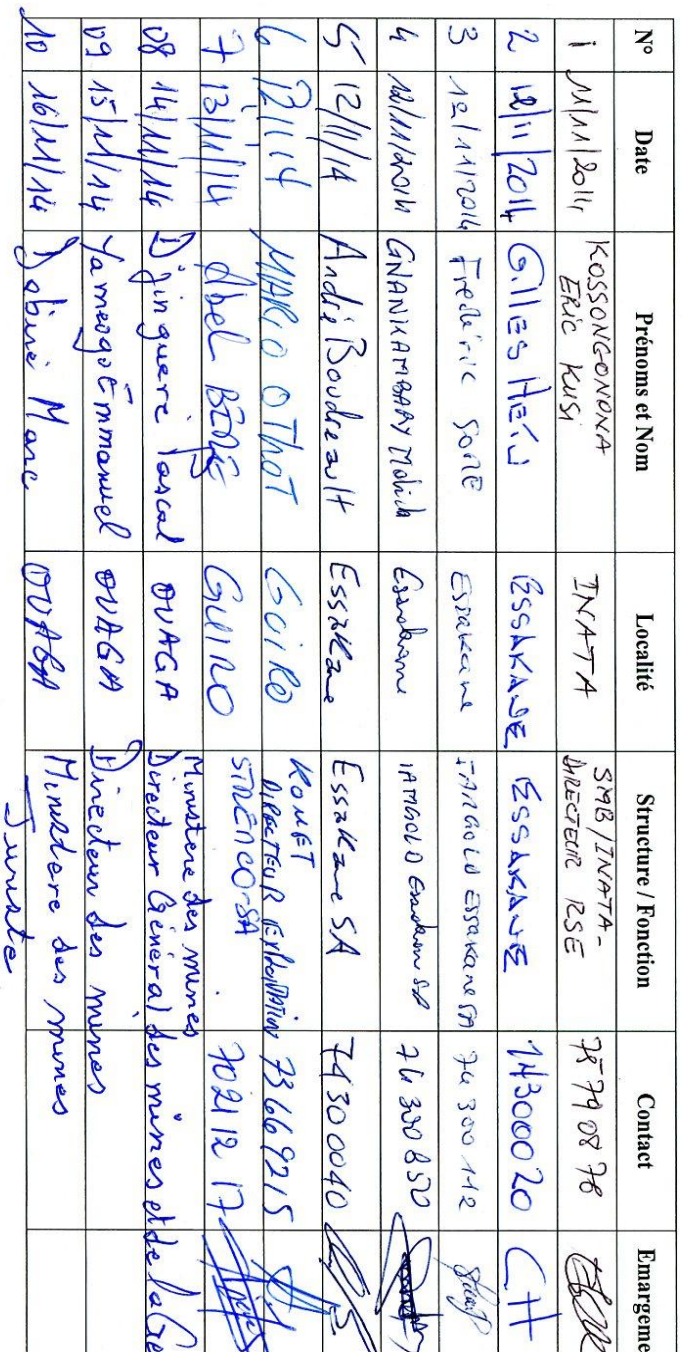 N° Date Prénoms et Nom Localité Structure / Fonction Contact Emargeme
1 11/11/2014 KOSSONGONONA ERIC KUSI INATA SMB/INATA- DIRECTEUR RSE 78790878
2 12/11/2014 GILLES HEIN ESSAKANE ESSAKANE 74300020 GH
3 12/11/2014 Frederic SORE Essakane IAMGOLD Essakane SA 74 300 112
4 12/11/2014 GNANKAMBARY Essakane IAMGOLD Essakane SA 74 300 850
5 12/11/14 André Boudreault Essakane Essakane SA 74300040
6 12/11/14 MARIO OTHOT GUIRO KOMET DIRECTEUR EXPLOITATION 73669215
7 13/11/14 Abel GUIRO STRENCO-SA 702112 17
08 14/11/14 Djinguere Pascal OUAGA Ministere des mines Directeur Général des mines et de la Ge
09 15/11/14 Yameogo Emmanuel OUAGA Directeur des mines
10 16/11/14 Dabiré Marc OUAGA Ministere des mines Juriste